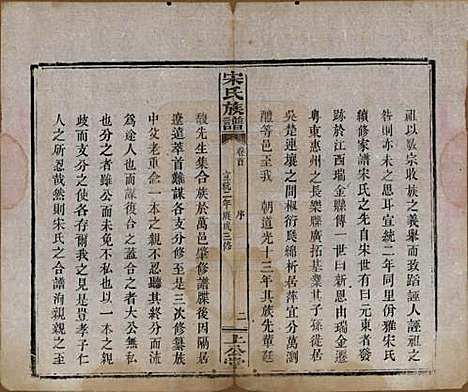 祖以敦宗收族之義舉而致蹈誣人誣祖之
咎則亦未之思耳宣統二年同併雅宋氏
續修家譜宋氏之先宋世有曰元東者發
跡於江西瑞金縣 世曰新恩由瑞金遷
粵東惠州之長樂縣廣拓基業其子孫於
吳楚連壤之間衍綿析居萍宜分萬瀏
醴等邑至我 朝道光十三年其族先輩廷
宋氏族譜
卷首
序
宣統二年庚戌三修
二
上公堂
馥先生集合族於萬邑肇修譜牒後因隔居
遼遠萃首難謀各支分修至是三次修纂族
中父老重念一本之親不忍以一本之人視
為途人也於是合之蓋合之者大公無私而
分之者雖公而未免不私也以一本之合而
歧而支分之使各存爾我之見是豈孝子仁
人之所忍哉然則宋氏之合譜洵親親之至